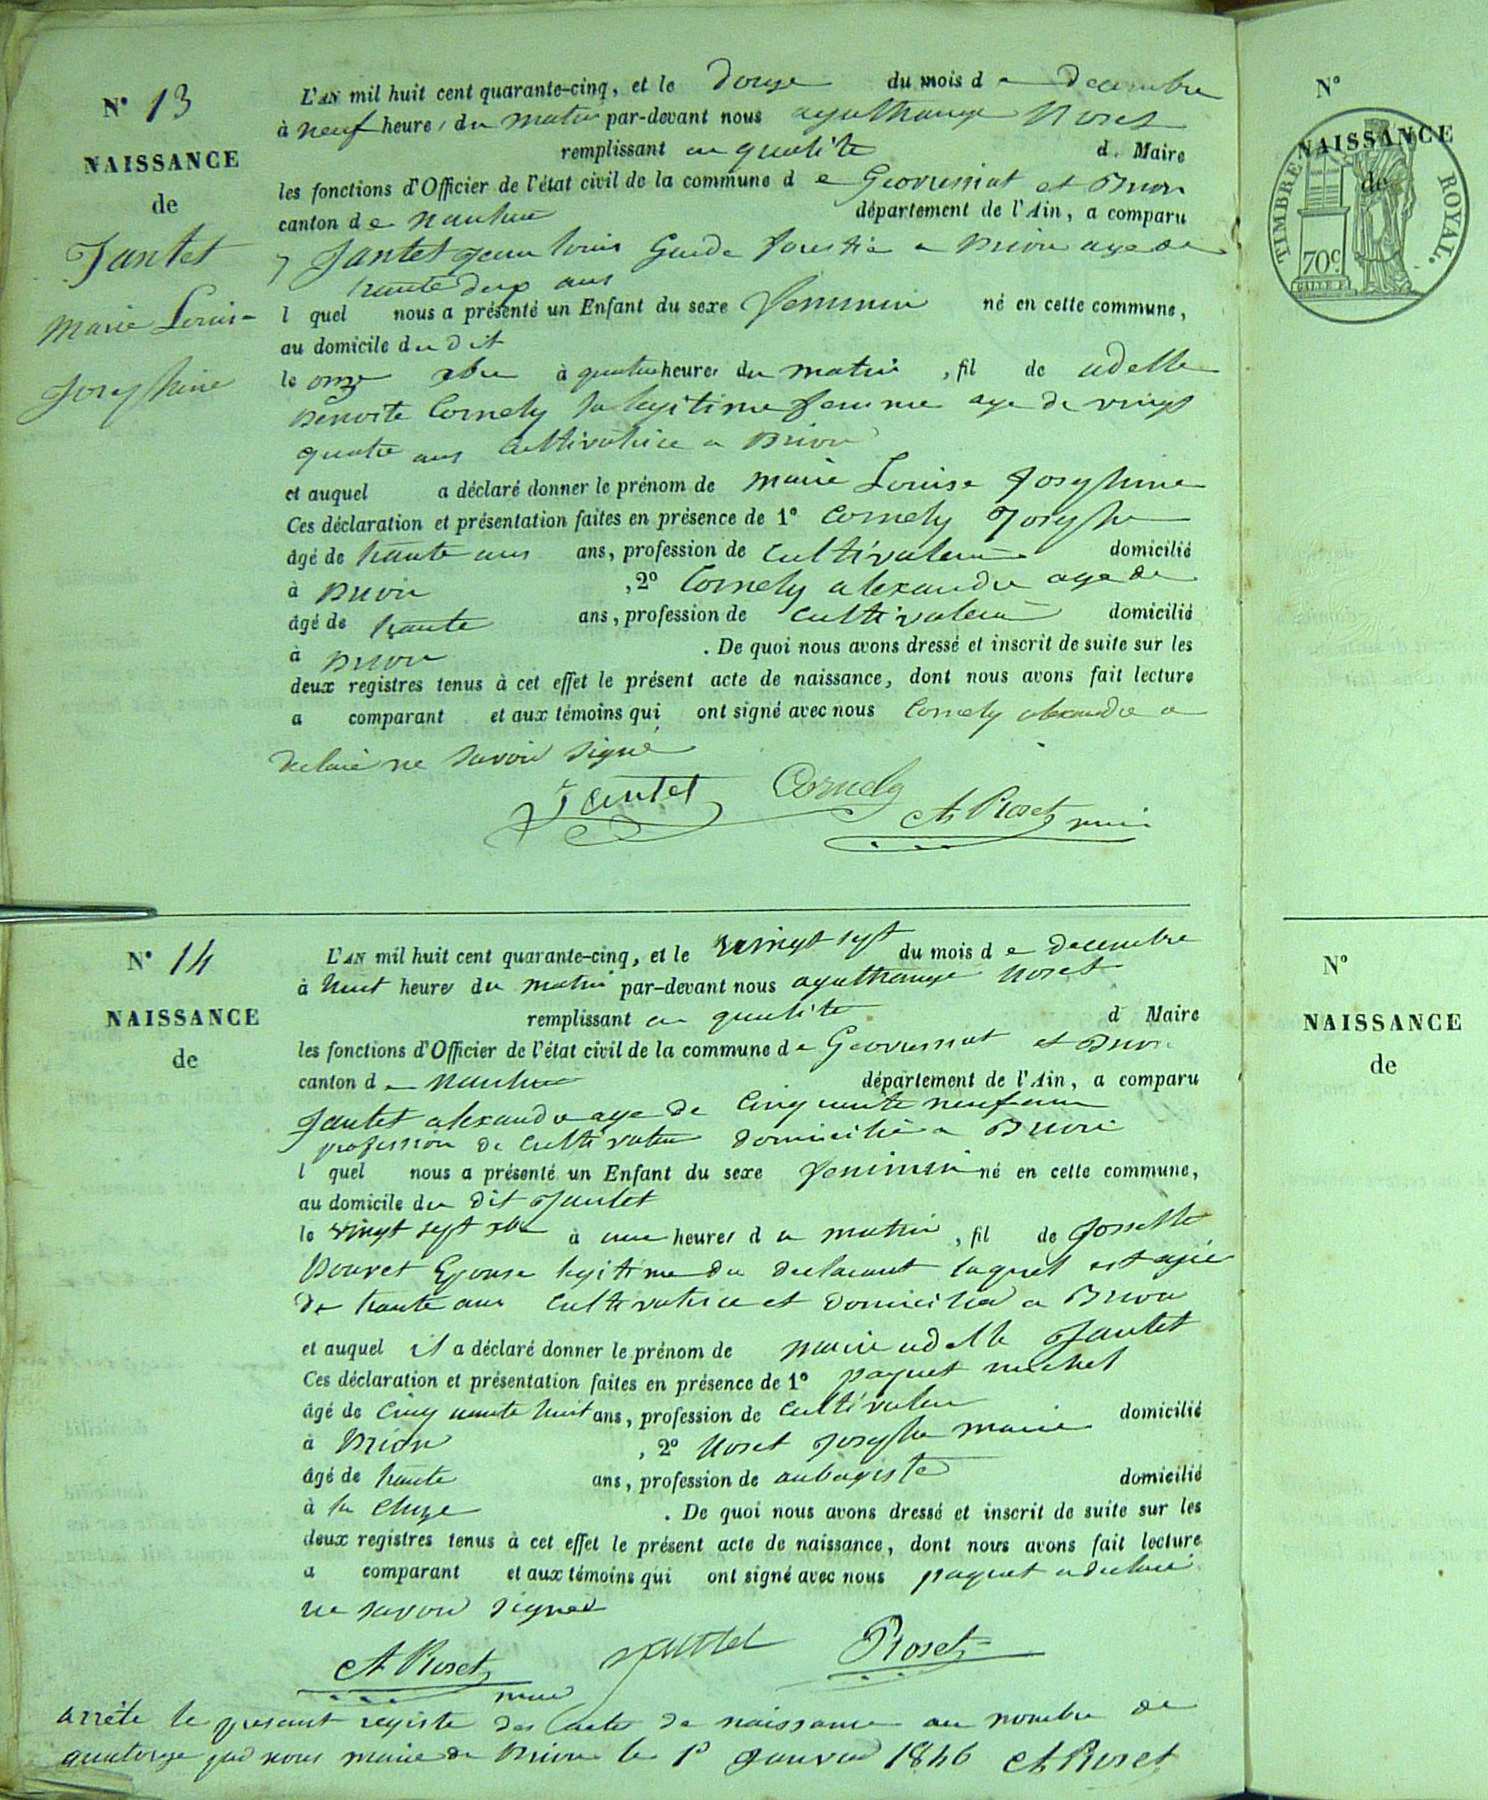 N° 13
NAISSANCE
de
Jantet
Marie Louise
Josephine
L'AN mil huit cent quarante-cinq, et le douze du mois de decembre
à neuf heures du matin par-devant nous agathange Roset
remplissant en qualité d. Maire
les fonctions d'Officier de l'état civil de la commune de Geovressiat et Brion
canton de nantua département de l'Ain, a comparu
Jantet jean louis Garde forestier a Brion age de
trante deux ans
l quel nous a présenté un Enfant du sexe feminin né en cette commune,
au domicile du dit
le onze xbre à quatre heures du matin, fil de adelle
Benoite Cornely sa legitime femme age de vingt
quatre ans cultivatrice a Brion
et auquel a déclaré donner le prénom de marie Louise Josephine
Ces déclaration et présentation faites en présence de 1° Cornely Josephe
âgé de trante ans ans, profession de cultivateur domicilié
à Brion, 2° Cornely alexandre age de
âgé de trante ans, profession de cultivateur domicilié
à Brion. De quoi nous avons dressé et inscrit de suite sur les
deux registres tenus à cet effet le présent acte de naissance, dont nous avons fait lecture
a comparant et aux témoins qui ont signé avec nous Cornely alexandre a
declaré ne savoir signé
Jantet Cornely At Roset maire
N° 14
NAISSANCE
de
L'AN mil huit cent quarante-cinq, et le vingt sept du mois de decembre
à huit heures du matin par-devant nous agathange Roset
remplissant en qualité d Maire
les fonctions d'Officier de l'état civil de la commune de Geovressiat et Brion
canton de nantua département de l'Ain, a comparu
Jantet alexandre age de cinquante neuf ans
profession de cultivateur domicilié a Brion
l quel nous a présenté un Enfant du sexe feminin né en cette commune,
au domicile du dit Jantet
le vingt sept xbre à une heures du matin, fil de Josette
Bouvet Epouse legitime du declarant laquel est agée
de trante ans cultivatrice et domicilié a Brion
et auquel il a déclaré donner le prénom de marie adelle Jantet
Ces déclaration et présentation faites en présence de 1° paquet michel
âgé de cinquante huit ans, profession de cultivateur domicilié
à Brion, 2° Roset Josephe marie
âgé de trante ans, profession de aubergiste domicilié
à la Cluze. De quoi nous avons dressé et inscrit de suite sur les
deux registres tenus à cet effet le présent acte de naissance, dont nous avons fait lecture
a comparant et aux témoins qui ont signé avec nous paquet a declaré
ne savoir signer
At Roset maire Jantet Roset
arrête le present registe des actes de naissance au nombre de
quatorze par nous maire de Brion le 1er Janvier 1846 At Roset
N°
NAISSANCE
de
TIMBRE ROYAL.
70c
N°
NAISSANCE
de